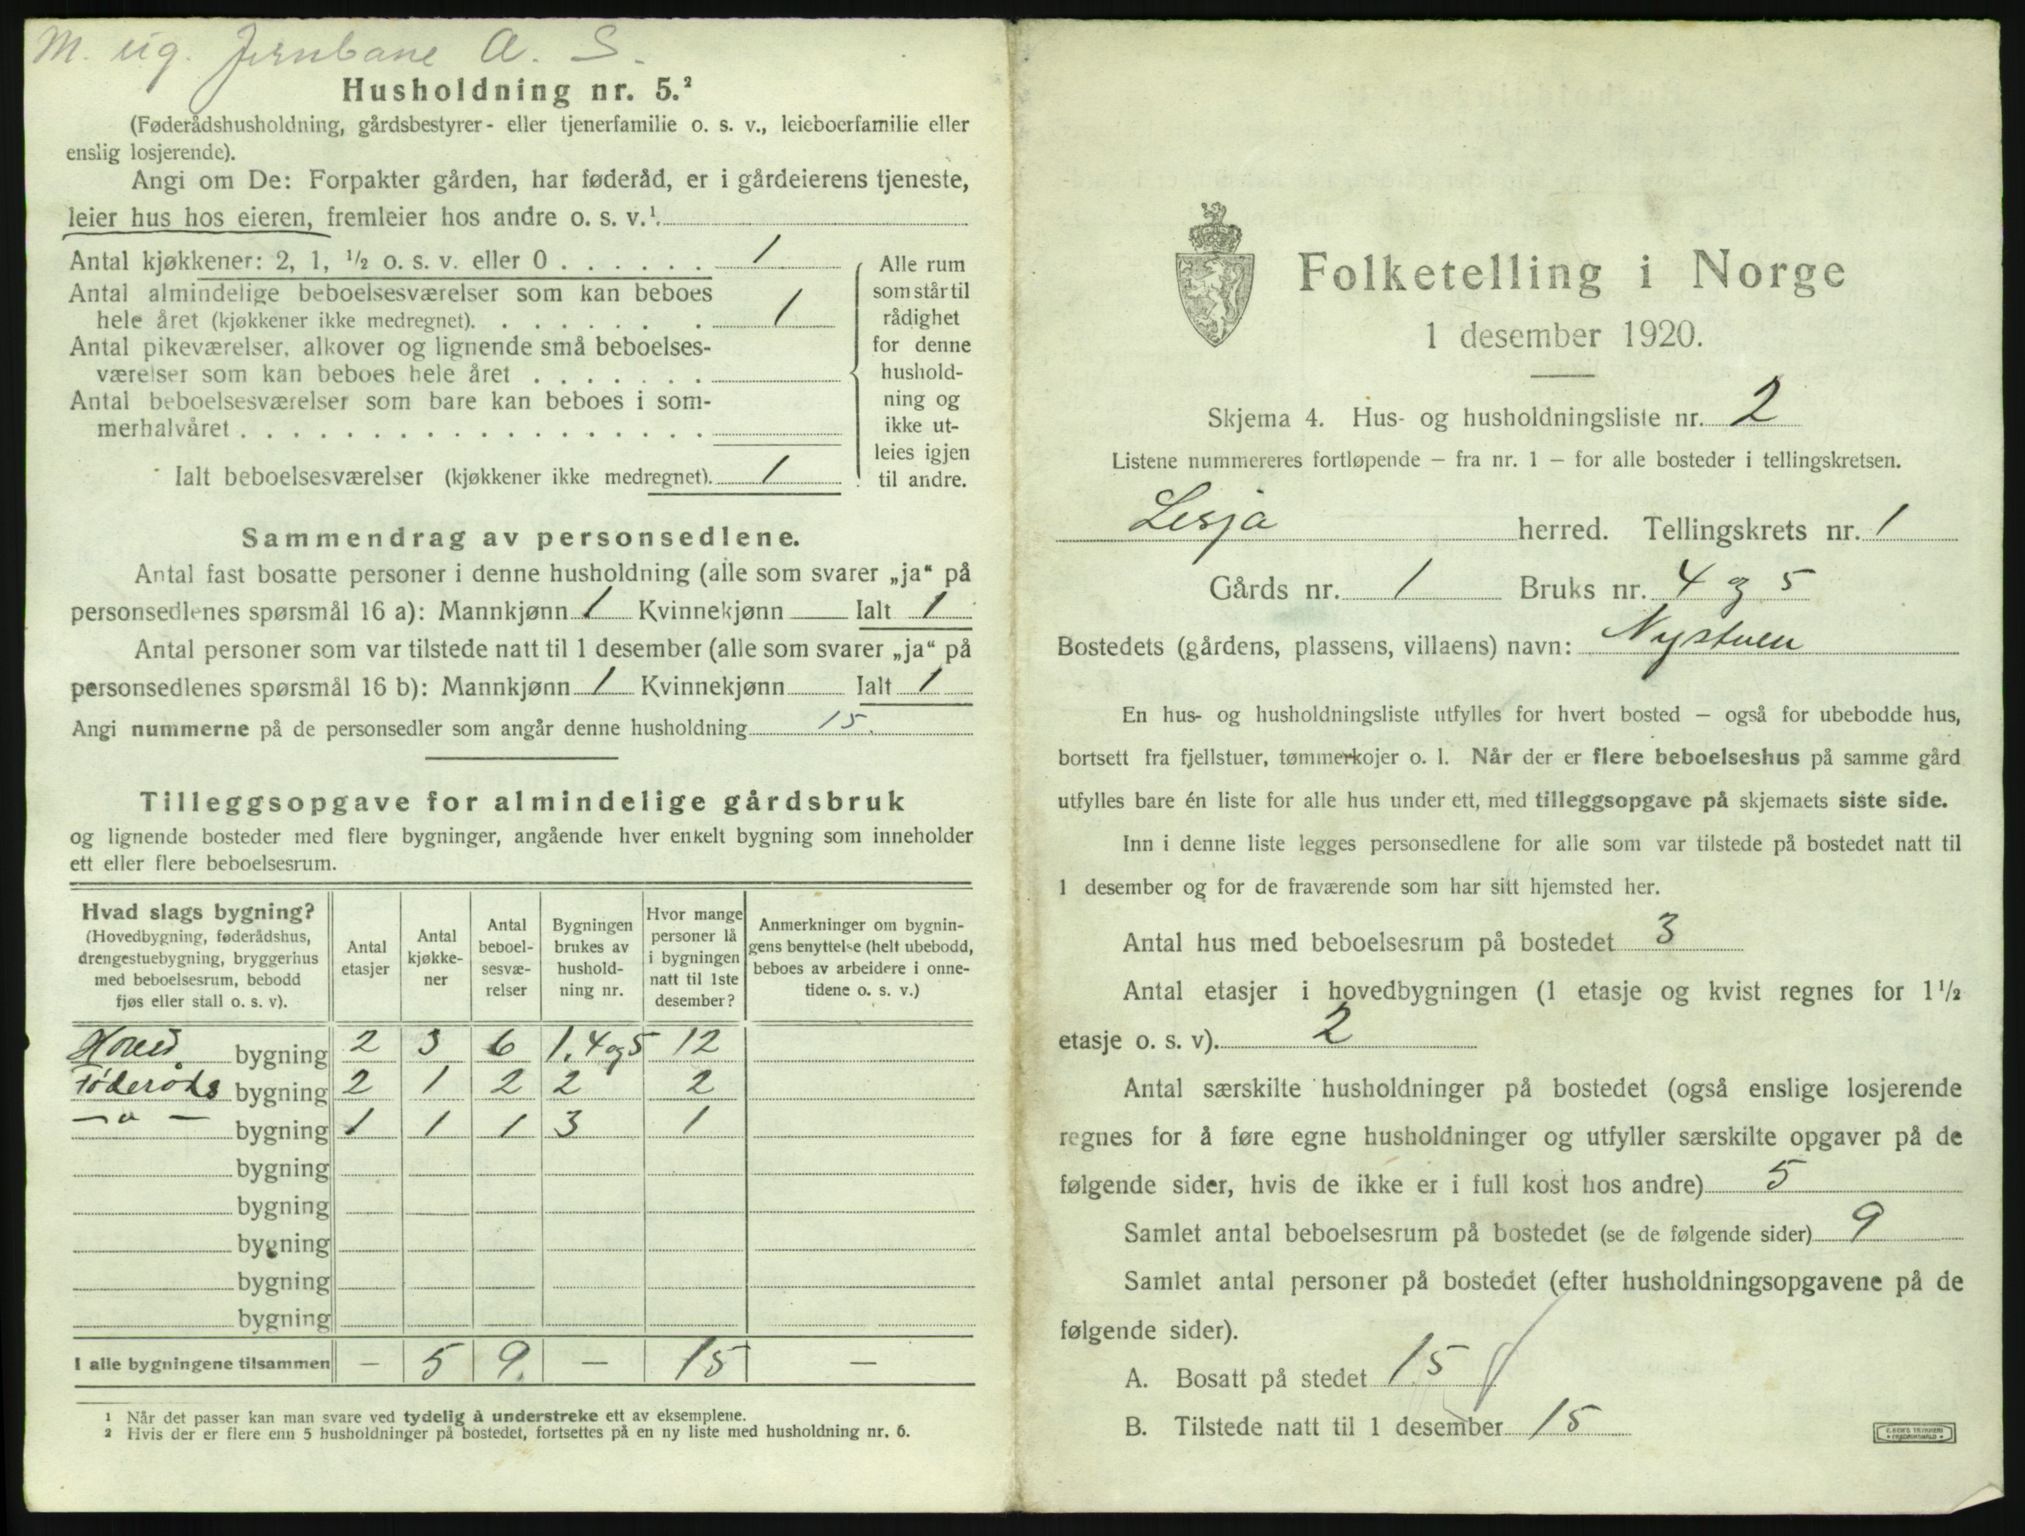 M. ug. Jernbane A. S.
Husholdning nr. 5.²
(Føderådshusholdning, gårdsbestyrer- eller tjenerfamilie o. s. v., leieboerfamilie eller
enslig losjerende).
Angi om De: Forpakter gården, har føderåd, er i gårdeierens tjeneste,
leier hus hos eieren, fremleier hos andre o. s. v.¹
Antal kjøkkener: 2, 1, ½ o. s. v. eller 0 . . . . . . 1
Antal almindelige beboelsesværelser som kan beboes
hele året (kjøkkener ikke medregnet). . . . . . . . 1
Antal pikeværelser, alkover og lignende små beboelses-
værelser som kan beboes hele året . . . . . . .
Antal beboelsesværelser som bare kan beboes i som-
merhalvåret . . . . . . . . . . . . . . . . . .
Ialt beboelsesværelser (kjøkkener ikke medregnet). 1
Alle rum
som står til
rådighet
for denne
hushold-
ning og
ikke ut-
leies igjen
til andre.
Sammendrag av personsedlene.
Antal fast bosatte personer i denne husholdning (alle som svarer „ja“ på
personsedlenes spørsmål 16 a): Mannkjønn 1 Kvinnekjønn Ialt 1
Antal personer som var tilstede natt til 1 desember (alle som svarer „ja“ på
personsedlenes spørsmål 16 b): Mannkjønn 1 Kvinnekjønn Ialt 1
Angi nummerne på de personsedler som angår denne husholdning 15.
Tilleggsopgave for almindelige gårdsbruk
og lignende bosteder med flere bygninger, angående hver enkelt bygning som inneholder
ett eller flere beboelsesrum.
Hvad slags bygning?
(Hovedbygning, føderådshus,
drengestuebygning, bryggerhus
med beboelsesrum, bebodd
fjøs eller stall o. s. v).
Antal
etasjer
Antal
kjøkke-
ner
Antal
beboel-
sesvæ-
relser
Bygningen
brukes av
hushold-
ning nr.
Hvor mange
personer lå
i bygningen
natt til 1ste
desember?
Anmerkninger om bygnin-
gens benyttelse (helt ubebodd,
beboes av arbeidere i onne-
tidene o. s. v.)
Hoved bygning 2 3 6 1, 4 og 5 12
Føderåds bygning 2 1 2 2 2
— " — bygning 1 1 1 3 1
bygning
bygning
bygning
bygning
bygning
I alle bygningene tilsammen — 5 9. — 15 —
¹ Når det passer kan man svare ved tydelig å understreke ett av eksemplene.
² Hvis der er flere enn 5 husholdninger på bostedet, fortsettes på en ny liste med husholdning nr. 6.
Folketelling i Norge
1 desember 1920.
Skjema 4. Hus- og husholdningsliste nr. 2
Listene nummereres fortløpende – fra nr. 1 – for alle bosteder i tellingskretsen.
Lesja herred. Tellingskrets nr. 1
Gårds nr. 1 Bruks nr. 4 og 5
Bostedets (gårdens, plassens, villaens) navn: Nystuen
En hus- og husholdningsliste utfylles for hvert bosted – også for ubebodde hus,
bortsett fra fjellstuer, tømmerkojer o. l. Når der er flere beboelseshus på samme gård
utfylles bare én liste for alle hus under ett, med tilleggsopgave på skjemaets siste side.
Inn i denne liste legges personsedlene for alle som var tilstede på bostedet natt til
1 desember og for de fraværende som har sitt hjemsted her.
Antal hus med beboelsesrum på bostedet 3
Antal etasjer i hovedbygningen (1 etasje og kvist regnes for 1½
etasje o. s. v). 2
Antal særskilte husholdninger på bostedet (også enslige losjerende
regnes for å føre egne husholdninger og utfyller særskilte opgaver på de
følgende sider, hvis de ikke er i full kost hos andre) 5
Samlet antal beboelsesrum på bostedet (se de følgende sider) 9
Samlet antal personer på bostedet (efter husholdningsopgavene på de
følgende sider).
A. Bosatt på stedet 15
B. Tilstede natt til 1 desember 15